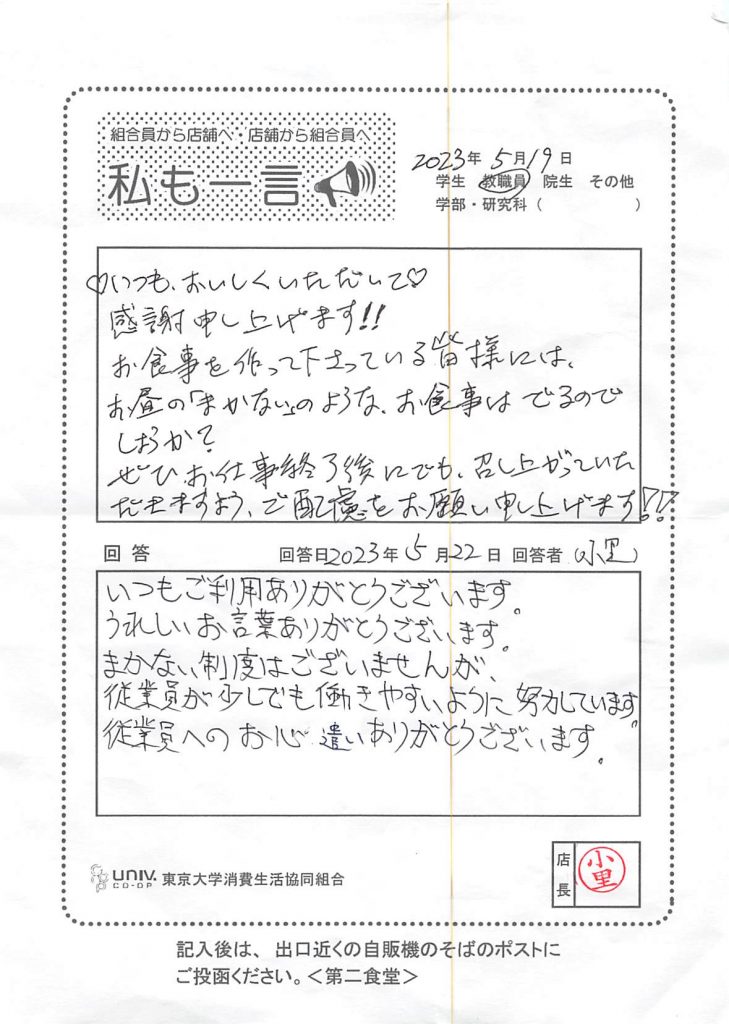 組合員から店舗へ 店舗から組合員へ
私も一言
2023年5月19日
学生 教職員 院生 その他
学部・研究科( )
♡いつも、おいしくいただいて♡
感謝申し上げます!!
お食事を作って下さっている皆様には、
お昼の「まかない」のような、お食事はでるので
しょうか?
ぜひ、お仕事終了後にでも、召し上がっていた
だきますよう、ご配慮をお願い申し上げます!!
回答 回答日2023年5月22日 回答者(小里)
いつもご利用ありがとうございます。
うれしいお言葉ありがとうございます。
まかない制度はございませんが、
従業員が少しでも働きやすいように努力しています。
従業員へのお心遣いありがとうございます。
店長 小里
UNIV. CO-OP 東京大学消費生活協同組合
記入後は、出口近くの自販機のそばのポストに
ご投函ください。<第二食堂>